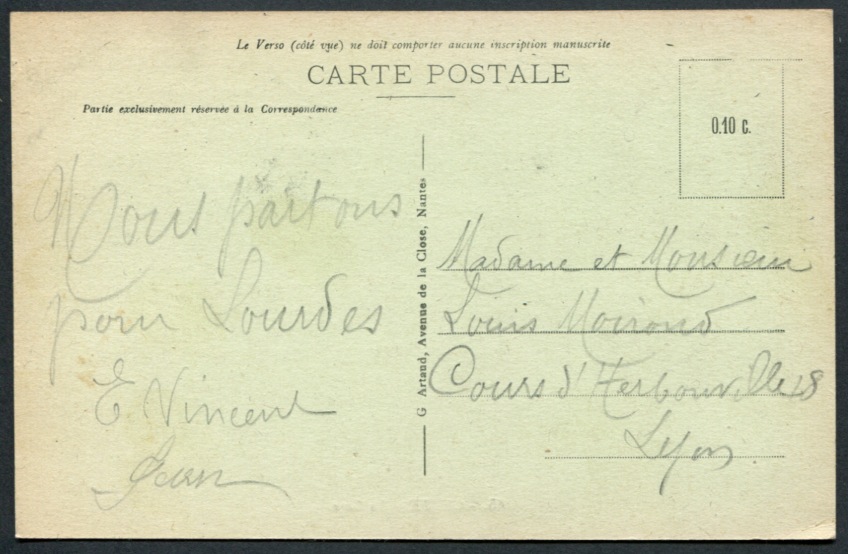 Le Verso (côté vue) ne doit comporter aucune inscription manuscrite
CARTE POSTALE
Partie exclusivement réservée à la Correspondance
0.10 c.
Nous partons
pour Lourdes
E Vincent
Jean
G Artaud, Avenue de la Close, Nantes
Madame et Monsieur
Louis Moiroud
Cours d'Herbouville 18
Lyon